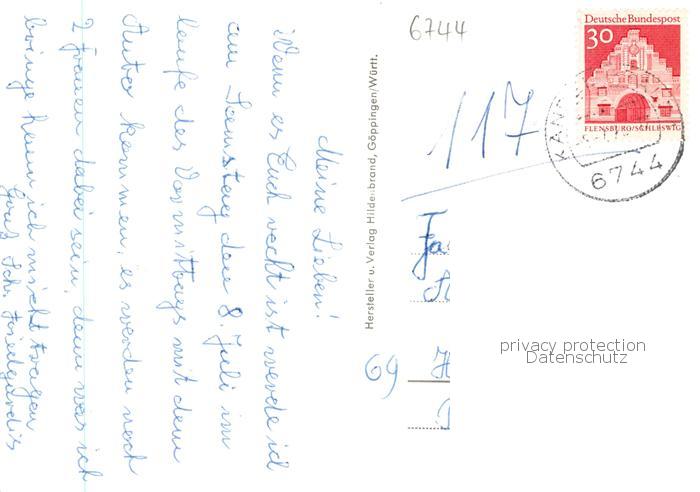 Meine Lieben!
Wenn es Euch recht ist werde ich
am Samstag den 8. Juli im
laufe des Vormittags mit dem
Auto kommen, es werden noch
2 Frauen dabei sein, denn was ich
bringe kann ich nicht tragen
Gruß Schw. Friedgardis
Hersteller u. Verlag Hildenbrand, Göppingen/Württ.
6744
Deutsche Bundespost
30
FLENSBURG/SCHLESWIG
6744
117
69
privacy protection
Datenschutz